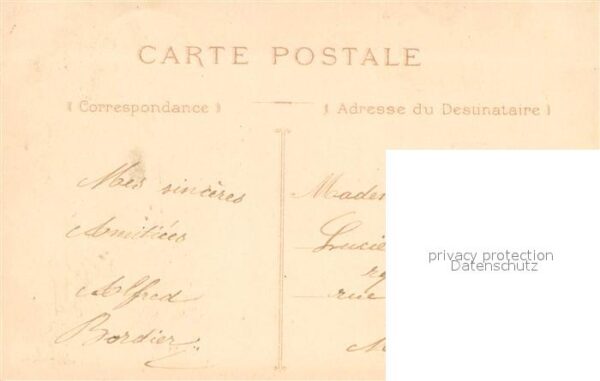 CARTE POSTALE
Correspondance
Adresse du Destinataire
Mes sincères
Amitiées
Alfred
Bordier
Mades
Lucie
rue
privacy protection
Datenschutz